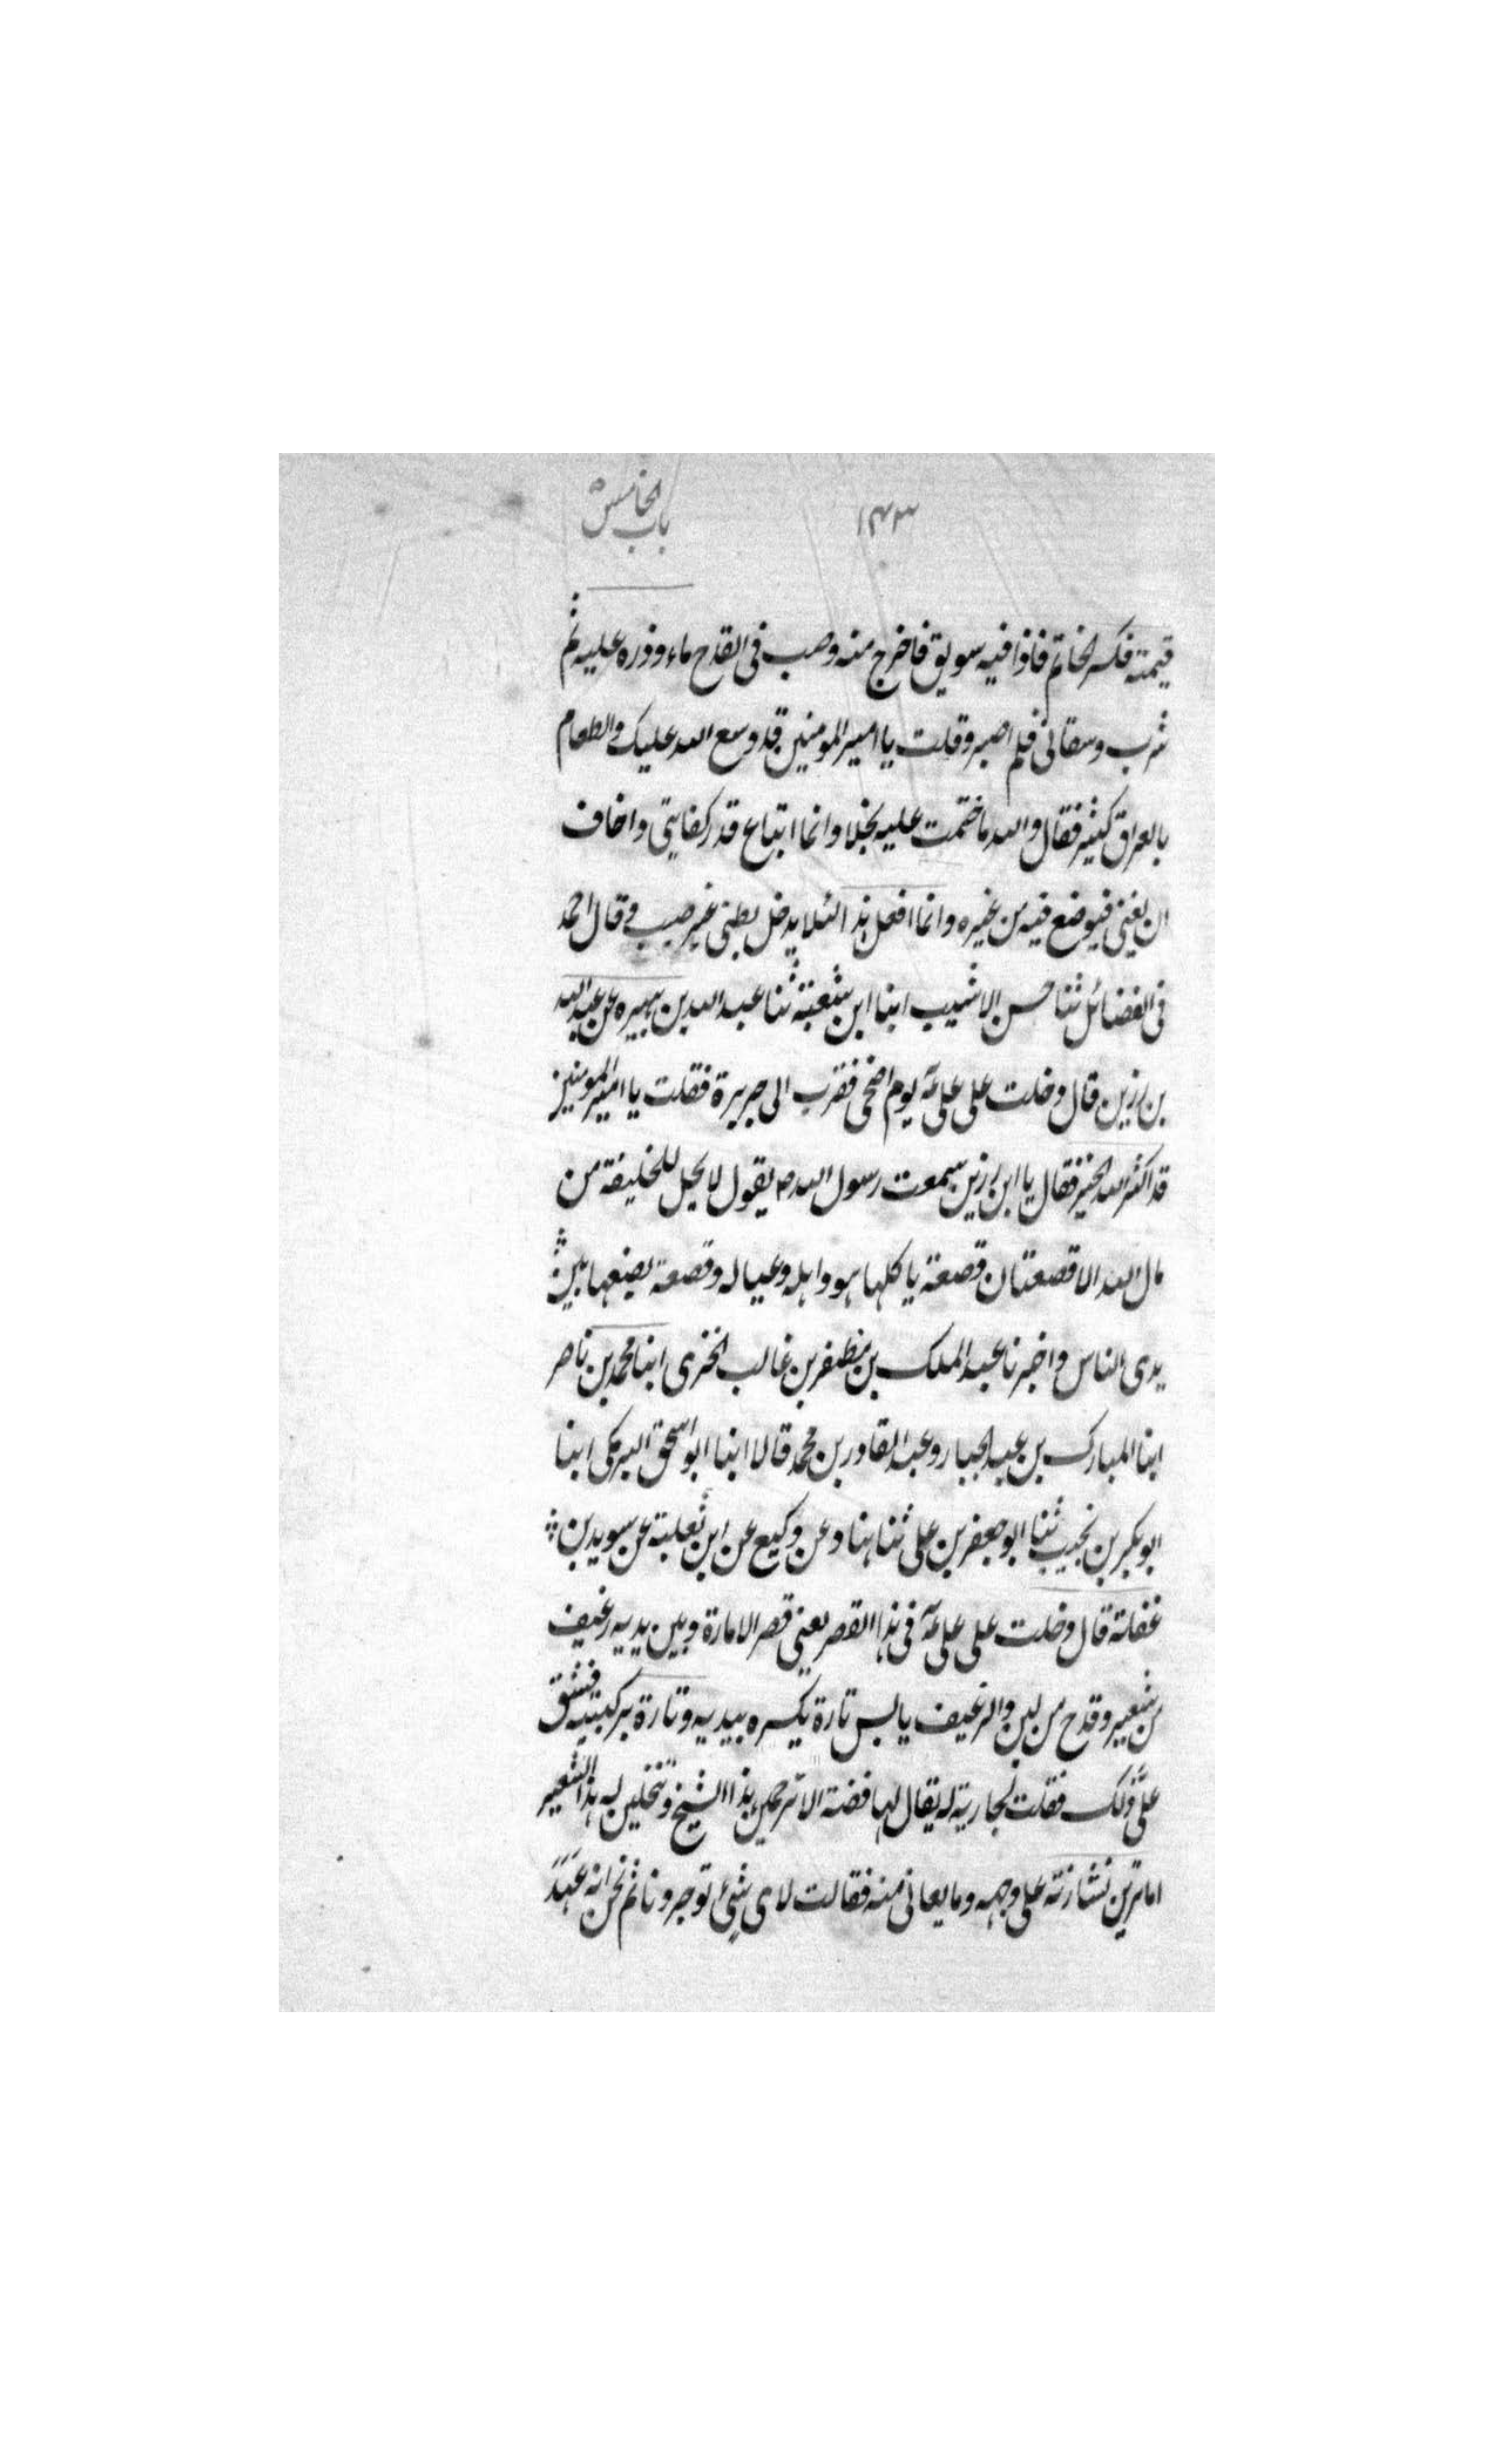 ١٤٣
باب الخامس
قيمته فكسر الخاتم فاذا فيه سويق فاخرج منه وصب فى القدح ماء وذره عليه ثم
شرب وسقانى فلم اصبر وقلت يا امير المومنين قد وسع الله عليك والطعام
بالعراق كثير فقال والله ما ختمت عليه بخلا وانما ابتاع قدر كفايتى واخاف
ان يفنى فيوضع فيه من غيره وانما افعل هذا لئلا يدخل بطنى غير طيب و قال احمد
فى الفضائل ثنا حسن الاشيب ابنا ابن شعبة ثنا عبد الله بن هبيره عن عبد الله
بن رزين قال دخلت على على عم يوم اضحى فقرب الى حريرة فقلت يا امير المومنين
قد اكثر الله الخير فقال يا ابن رزين سمعت رسول الله ص يقول لا يحل للخليفة من
مال الله الا قصعتان قصعة ياكلها هو واهله وعياله وقصعة يضعها بين
يدى الناس واخبرنا عبد الملك بن مظفر بن غالب الخزى ابنا محمد بن ناصر
ابنا المبارك بن عبد الجبار وعبد القادر بن محمد قالا ابنا ابو اسحق البرمكى ابنا
ابو بكر بن نجيب ثنا ابو جعفر بن على ثنا هناد عن وكيع عن ابن ثعلبة عن سويد بن
غفلة قال دخلت على على عم فى هذا القصر يعنى قصر الامارة وبين يديه رغيف
من شعير وقدح من لبن والرغيف يابس تارة يكسره بيديه وتارة بركبتيه فشق
علىَّ ذلك فقلت لجارية له يقال لها فضة الا ترحمين هذا الشيخ وتنخلين له هذا الشعير
اما ترين نشارته على وجهه وما يعانى منه فقالت لاى شئ توجر ونا ثم نحن انه عهد